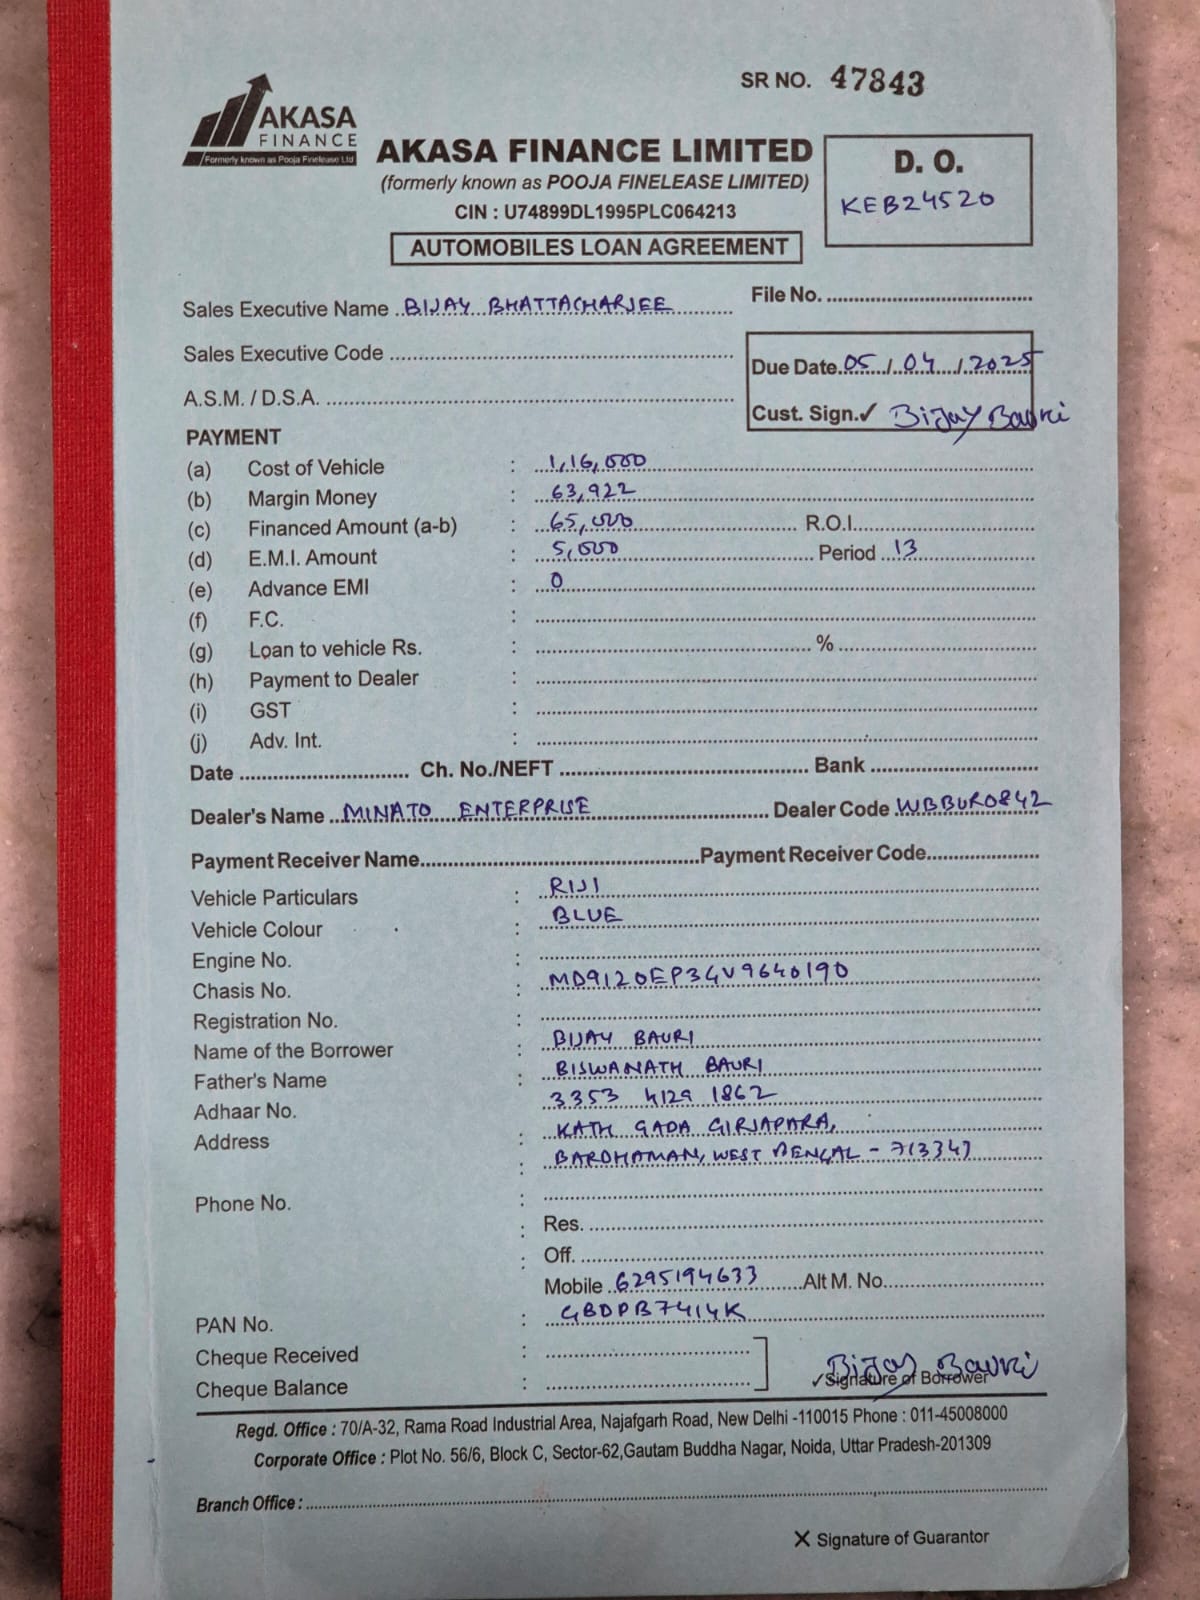 SR NO. 47843
AKASA
FINANCE
Formerly known as Pooja Finelease Ltd
AKASA FINANCE LIMITED
(formerly known as POOJA FINELEASE LIMITED)
CIN : U74899DL1995PLC064213
AUTOMOBILES LOAN AGREEMENT
D. O.
KEB24520
Sales Executive Name BIJAY BHATTACHARJEE
File No.
Sales Executive Code
Due Date 05/04/2025
A.S.M. / D.S.A.
Cust. Sign.✓ Bijay Bauri
PAYMENT
(a) Cost of Vehicle : 1,16,000
(b) Margin Money : 63,922
(c) Financed Amount (a-b) : 65,000 R.O.I.
(d) E.M.I. Amount : 5,000 Period 13
(e) Advance EMI : 0
(f) F.C. :
(g) Loan to vehicle Rs. : %
(h) Payment to Dealer :
(i) GST :
(j) Adv. Int. :
Date Ch. No./NEFT Bank
Dealer's Name MINATO ENTERPRISE Dealer Code WBBUR0842
Payment Receiver Name Payment Receiver Code
Vehicle Particulars : RIJI
Vehicle Colour : BLUE
Engine No. :
Chasis No. : MD9120EP3GV9640190
Registration No. :
Name of the Borrower : BIJAY BAURI
Father's Name : BISWANATH BAURI
Adhaar No. 3353 4129 1862
Address : KATH GADA GIRJAPARA,
: BARDHAMAN, WEST BENGAL - 713347
Phone No. :
: Res.
: Off.
Mobile 6295194633 Alt M. No.
PAN No. : GBDPB7414K
Cheque Received :
Cheque Balance :
Bijay Bauri
✓Signature of Borrower
Regd. Office : 70/A-32, Rama Road Industrial Area, Najafgarh Road, New Delhi -110015 Phone : 011-45008000
Corporate Office : Plot No. 56/6, Block C, Sector-62,Gautam Buddha Nagar, Noida, Uttar Pradesh-201309
Branch Office :
X Signature of Guarantor